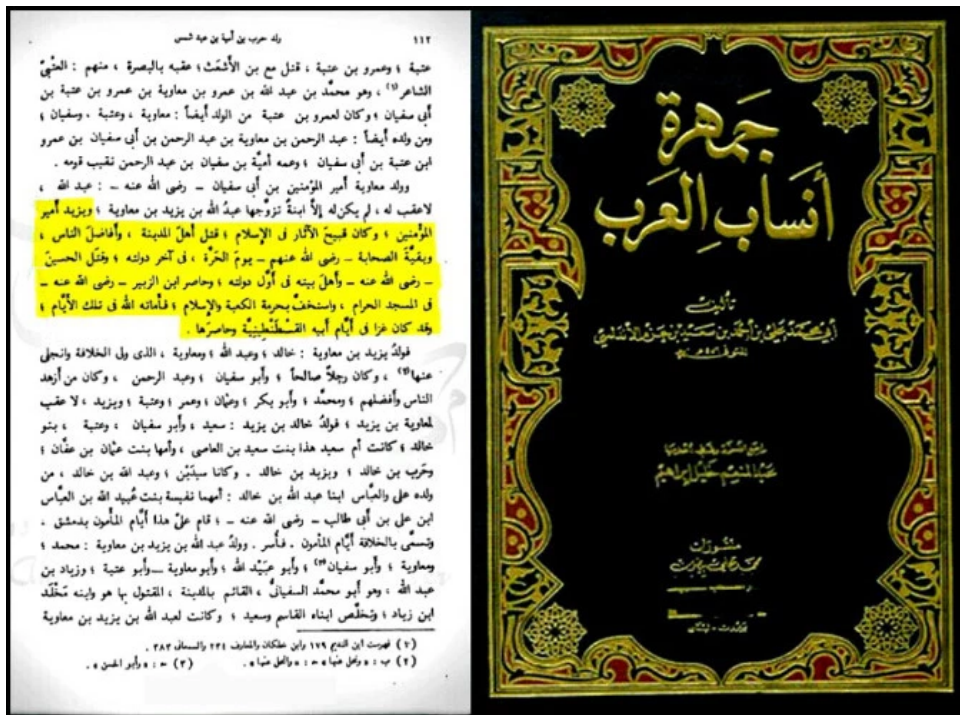 ١١٢
ولد حرب بن أمية بن عبد شمس
عتبة ؛ وعمرو بن عتبة ، قتل مع بن الأشعث؛ عقبه بالبصرة ، منهم : العتبىّ
الشاعر(١) ، وهو محمَّد بن عبد الله بن عمرو بن معاوية بن عمرو بن عتبة بن
أبى سفيان ؛ وكان لعمرو بن عتبة من الولد أيضاً : معاوية ، وعتبة . وسفيان ؛
ومن ولده أيضاً : عبد الرحمن بن معاوية بن عبد الرحمن بن أبى سفيان بن عمرو
ابن عتبة بن أبى سفيان ؛ وعمه أميَّة بن سفيان بن عبد الرحمن نقيب قومه .
وولد معاوية أمير المؤمنين بن أبى سفيان – رضى الله عنه – : عبد الله ،
لاعقب له ، لم يكن له إلاَّ ابنةٌ تزوَّجها عبدُ الله بن يزيد بن معاوية ؛ ويزيد أمير
المؤمنين ؛ وكان قبيحَ الآثار فى الإسلام ؛ قتل أهلَ المدينة ، وأفاضلَ الناس ،
وبقيَّةَ الصحابة – رضى الله عنهم – يومَ الحَرَّة ، فى آخر دولته ؛ وقتَل الحسينَ
– رضى الله عنه – وأهلَ بيته فى أوَّل دولته ؛ وحاصر ابن الزبير – رضى الله عنه –
فى المسجد الحرام ، واستخفَّ بحرمة الكعبة والإسلام ؛ فأماته الله فى تلك الأيَّام ؛
وقد كان غزا فى أيَّام أبيه القسْطَنْطِينِيَّة وحاصرَها .
فولدُ يزيد بن معاوية : خالد ؛ وعبد الله ؛ ومعاوية ، الذى ولى الخلافة وانجلى
عنها(٢) ، وكان رجلاً صالحاً ؛ وأبو سفيان ؛ وعبد الرحمن ، وكان من أزهد
الناس وأفضلهم ؛ ومحمَّد ؛ وأبو بكر ؛ وعثمان ؛ وعمر ؛ وعتبة ؛ ويزيد ، لا عقب
لمعاوية بن يزيد ؛ فولدُ خالد بن يزيد : سعيد ، وأبو سفيان ، وعتبة ، بنو
خالد ؛ كانت أم سعيد هذا بنت سعيد بن العاصى ، وأمها بنت عثمان بن عفَّان ؛
وحَرب بن خالد ؛ ويزيد بن خالد . وكانا سيدَيْن ؛ وعبد الله بن خالد ، من
ولده على والعبَّاس ابنا عبد الله بن خالد : أمهما نفيسة بنت عُبيد الله بن العبَّاس
ابن على بن أبى طالب – رضى الله عنه – ؛ قام علىّ هذا أيَّام المأمون بدمشق ،
وتسمَّى بالخلافة أيَّام المأمون . فأسر . وولدُ عبد الله بن يزيد بن معاوية : محمد ؛
ومعاوية ؛ وأبو سفيان(٣) ؛ وأبو عبيَد الله ؛ وأبو معاوية – وأبو عتبة ؛ وزياد بن
عبد الله ، وهو أبو محمَّد السفيانى ، القائم بالمدينة ، المقتول بها هو وابنه مَخْلَد
ابن زياد ؛ وتخلَّص ابناه القاسم وسعيد ؛ وكانت لعبد الله بن يزيد بن معاوية
(١) فهرست ابن النديم ١٧٩ وابن خلكان والمعارف ٢٣٤ والسمعانى ٣٨٣ .
(٢) ب : « وتخل عنها » م : « والتخل عنها » . (٣) م : « وأبو الحسن » .
جَمهرة
أنسَاب العَرب
تأليف
أبي محمد علي بن أحمد بن سعيد بن حزم الأندلسي
عبد المنعم خليل إبراهيم
منشورات
محمد علي بيضون
بيروت - لبنان